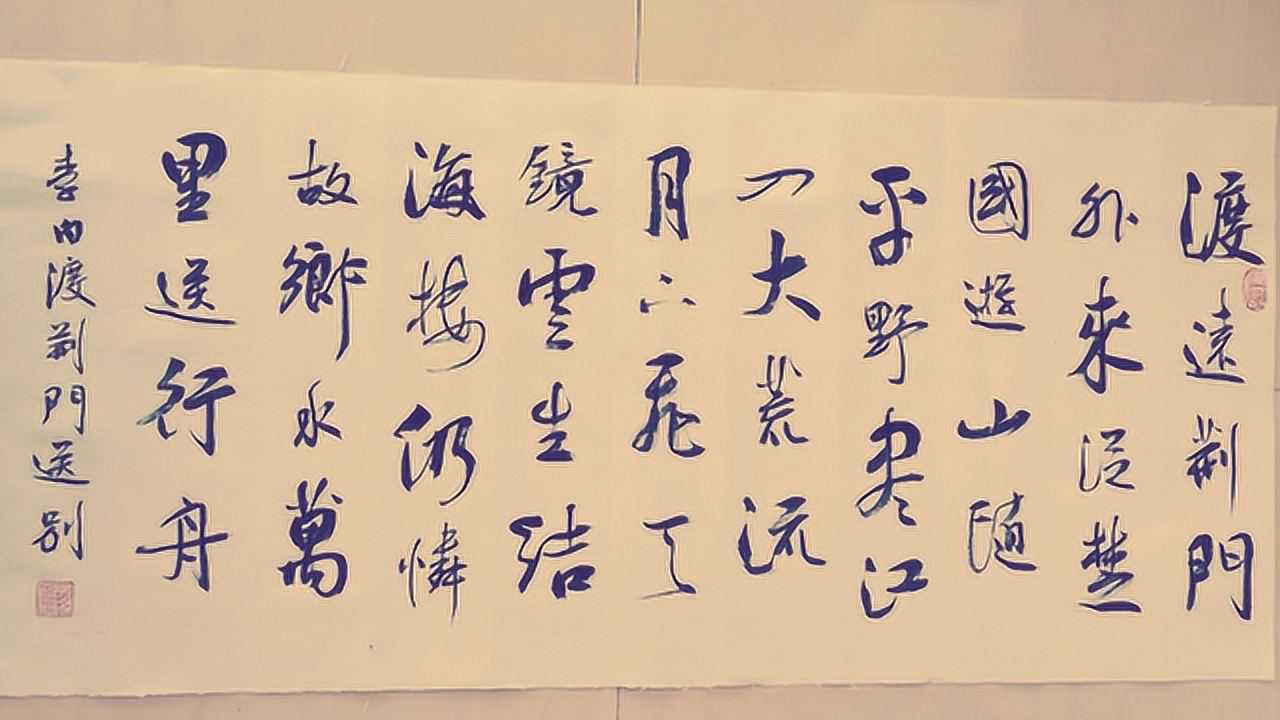 渡遠荆門
外來從楚
國遊山隨
平野盡江
入大荒流
月下飛天
鏡雲生结
海楼仍憐
故鄉水萬
里送行舟
李白渡荆門送别